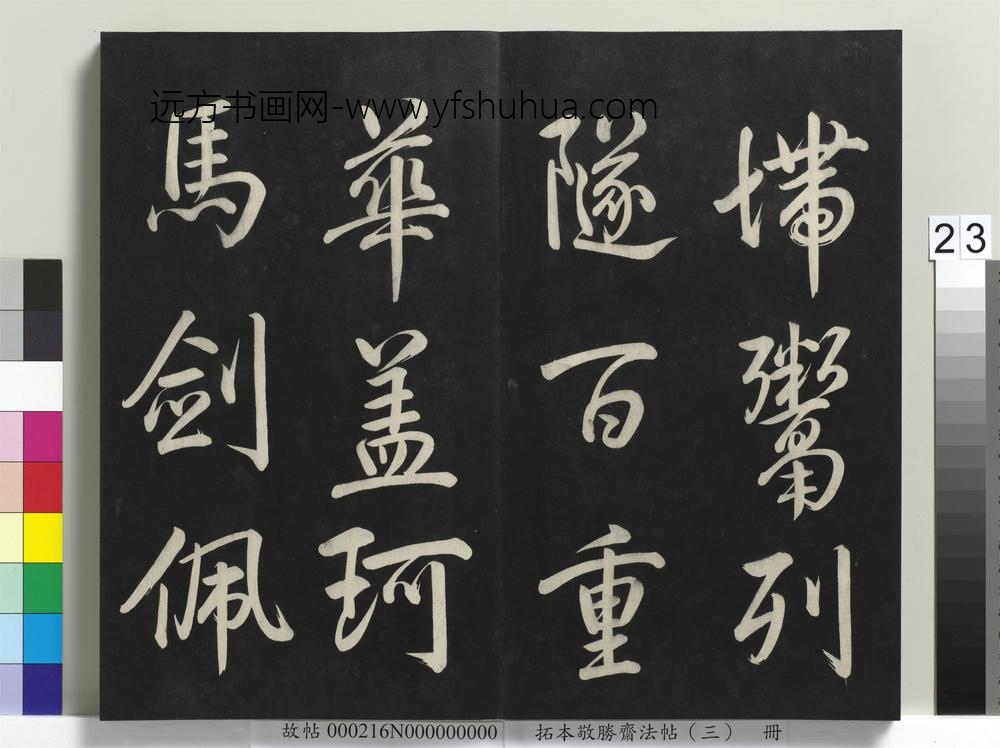 远方书画网-www.yfshuhua.com
墆鬻列
隧百重
華盖珂
馬剑佩
23
故帖 000216N000000000 拓本敬勝齋法帖（三） 冊